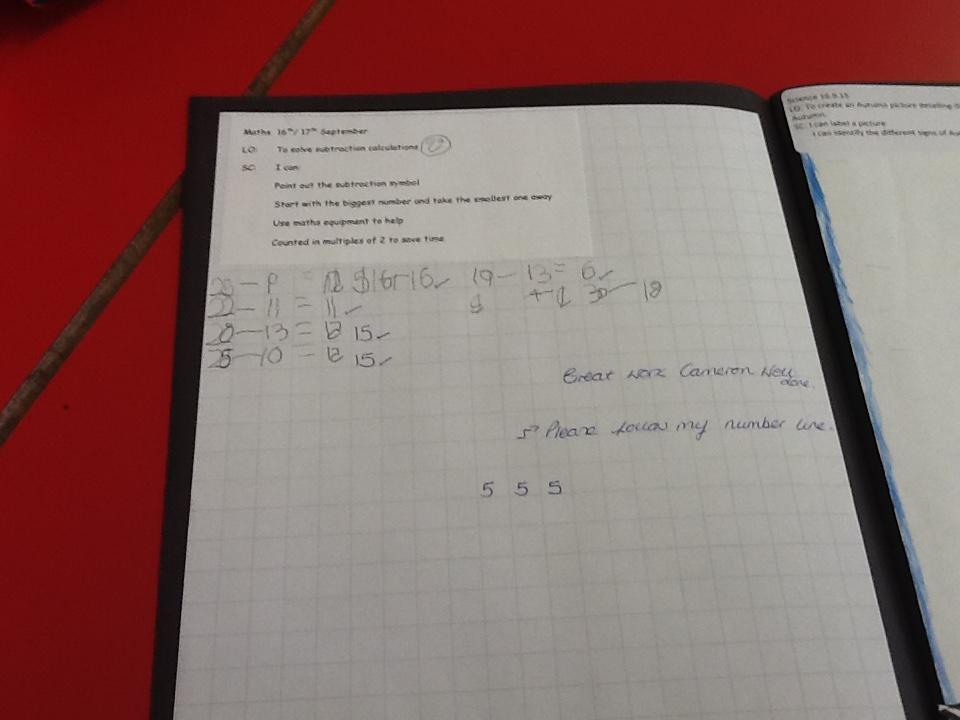 Maths 16th/ 17th September
LO: To solve subtraction calculations
SC: I can:
Point out the subtraction symbol
Start with the biggest number and take the smallest one away
Use maths equipment to help
Counted in multiples of 2 to save time
= 16 ✓ 19 - 13 = 6 ✓
22 - 11 = 11 ✓ 30 - 18
28 - 13 = 15 ✓
25 - 10 = 15 ✓
Great work Cameron Well done.
Please follow my number line.
5 5 5
Science 16.9.15
LO: To create an Autumn picture detailing
Autumn.
SC: I can label a picture
I can identify the different signs of